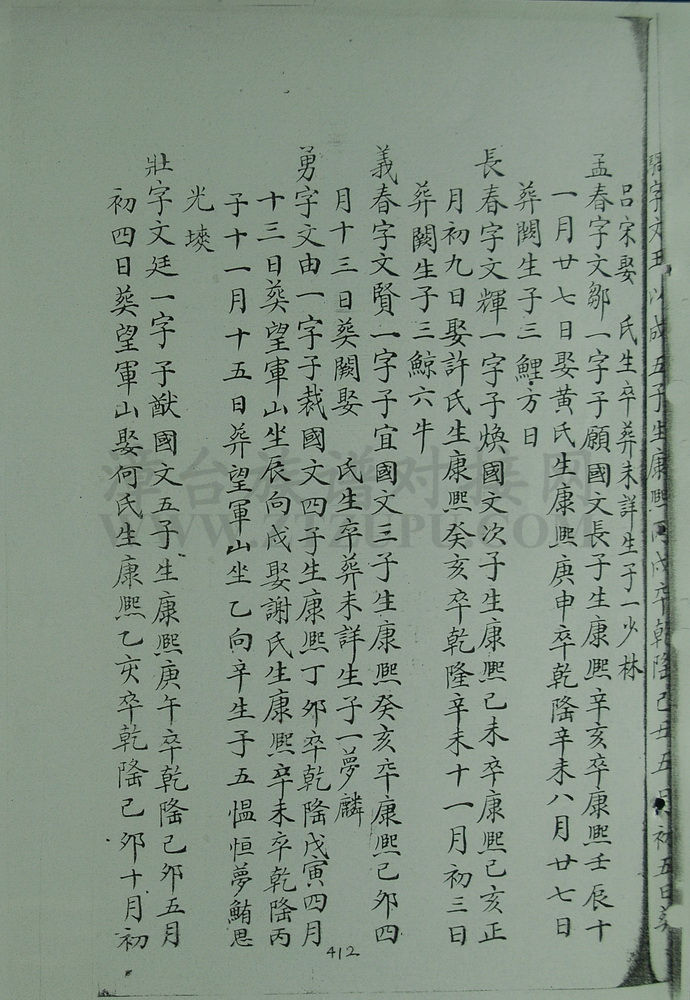 字文玉以成五子生康熙丙戌卒乾隆己丑五月初五日葬
呂宋娶 氏生卒葬未詳生子一少林
孟春字文鄒一字子願國文長子生康熙辛亥卒康熙壬辰十
一月廿七日娶黃氏生康熙庚申卒乾隆辛未八月廿七日
葬闕生子三鯉方日
長春字文輝一字子煥國文次子生康熙己未卒康熙己亥正
月初九日娶許氏生康熙癸亥卒乾隆辛未十一月初三日
葬闕生子三鯨六牛
義春字文賢一字子宜國文三子生康熙癸亥卒康熙己卯四
月十三日葬闕娶 氏生卒葬未詳生子一夢麟
勇字文由一字子裁國文四子生康熙丁卯卒乾隆戊寅四月
十三日葬望軍山坐辰向戌娶謝氏生康熙辛未卒乾隆丙
子十一月十五日葬望軍山坐乙向辛生子五愠恒夢鮪思
光墺
壯字文廷一字子猷國文五子生康熙庚午卒乾隆己卯五月
初四日葬望軍山娶何氏生康熙乙亥卒乾隆己卯十月初
412
漳台族谱对接网
WWW.ZTZUPU.COM